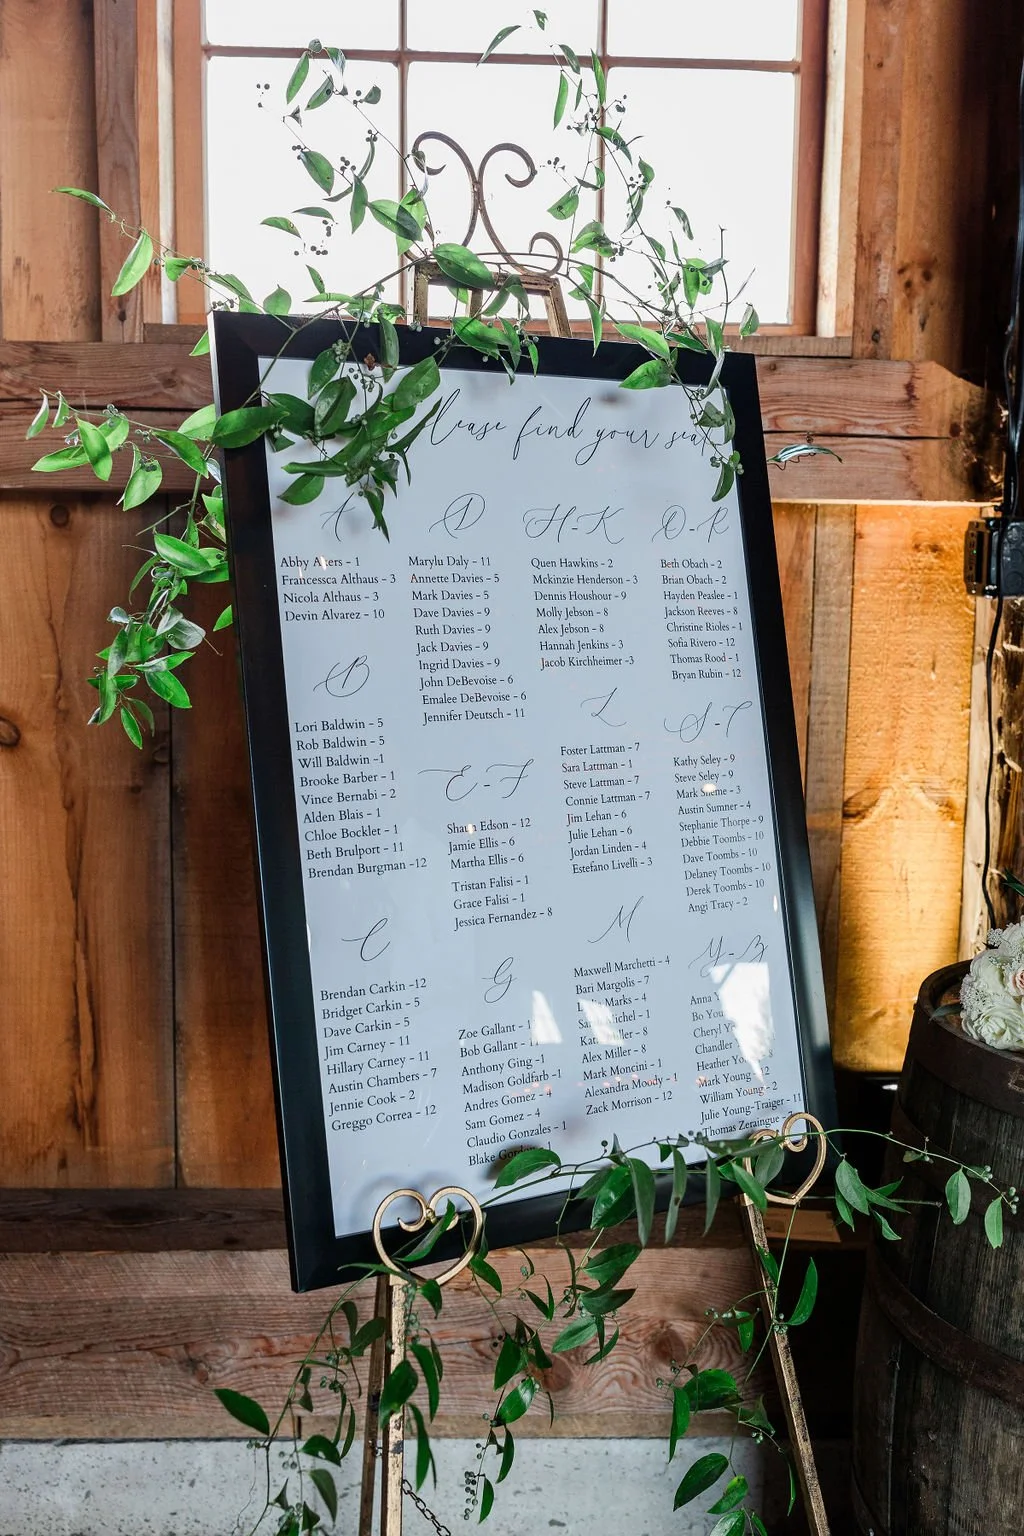 Please find your seat
A
Abby Akers - 1
Francessca Althaus - 3
Nicola Althaus - 3
Devin Alvarez - 10
B
Lori Baldwin - 5
Rob Baldwin - 5
Will Baldwin -1
Brooke Barber - 1
Vince Bernabi - 2
Alden Blais - 1
Chloe Bocklet - 1
Beth Brulport - 11
Brendan Burgman -12
C
Brendan Carkin -12
Bridget Carkin - 5
Dave Carkin - 5
Jim Carney - 11
Hillary Carney - 11
Austin Chambers - 7
Jennie Cook - 2
Greggo Correa - 12
D
Marylu Daly - 11
Annette Davies - 5
Mark Davies - 5
Dave Davies - 9
Ruth Davies - 9
Jack Davies - 9
Ingrid Davies - 9
John DeBevoise - 6
Emalee DeBevoise - 6
Jennifer Deutsch - 11
E-F
Shaun Edson - 12
Jamie Ellis - 6
Martha Ellis - 6
Tristan Falisi - 1
Grace Falisi - 1
Jessica Fernandez - 8
G
Zoe Gallant - 1
Bob Gallant -
Anthony Ging -1
Madison Goldfarb -1
Andres Gomez - 4
Sam Gomez - 4
Claudio Gonzales - 1
Blake
H-K
Quen Hawkins - 2
Mckinzie Henderson - 3
Dennis Houshour - 9
Molly Jebson - 8
Alex Jebson - 8
Hannah Jenkins - 3
Jacob Kirchheimer -3
L
Foster Lattman - 7
Sara Lattman - 1
Steve Lattman - 7
Connie Lattman - 7
Jim Lehan - 6
Julie Lehan - 6
Jordan Linden - 4
Estefano Livelli - 3
M
Maxwell Marchetti - 4
Bari Margolis - 7
Marks - 4
Michel - 1
Miller - 8
Alex Miller - 8
Mark Moncini - 1
Alexandra Moody - 1
Zack Morrison - 12
O-R
Beth Obach - 2
Brian Obach - 2
Hayden Peaslee - 1
Jackson Reeves - 8
Christine Rioles - 1
Sofia Rivero - 12
Thomas Rood - 1
Bryan Rubin - 12
S-T
Kathy Seley - 9
Steve Seley - 9
Mark - 3
Austin Sumner - 4
Stephanie Thorpe - 9
Debbie Toombs - 10
Dave Toombs - 10
Delaney Toombs - 10
Derek Toombs - 10
Angi Tracy - 2
Y-Z
Anna
Bo
Cheryl
Chandler
Heather
Mark Young - 12
William Young - 2
Julie Young-Traiger - 11
Thomas Zeraingue - 7